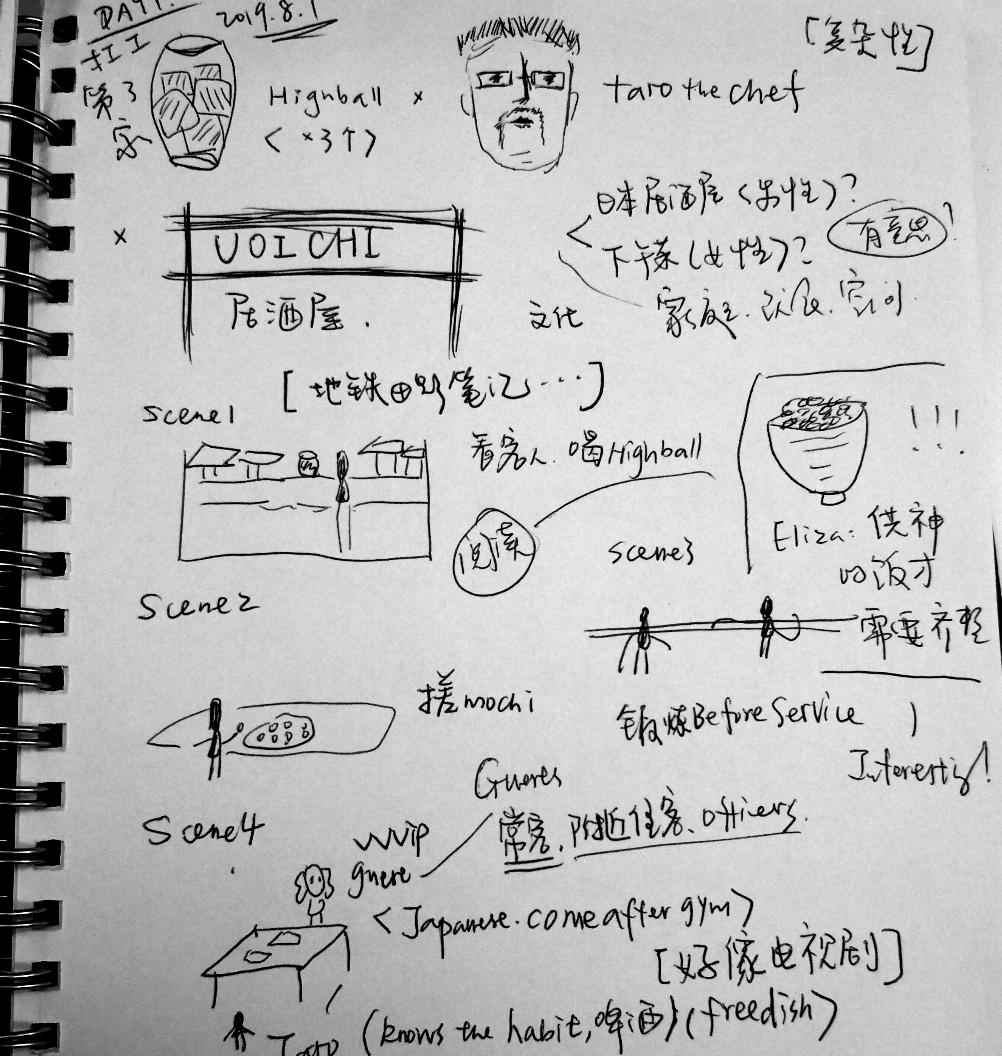 DAY1.
2019.8.1
打工
第3
Highball ×
< ×3个>
taro the chef
[复杂性]
×
UOICHI
居酒屋.
日本居酒屋(男性)?
下午茶(女性)?
有意思!
文化
家庭.
[地铁田野笔记...]
Scene1
看客人.喝Highball
阅读
!!!
Eliza: 供神
的饭才
需要齐整
Interesting!
Scene2
搓mochi
Scene3
锻炼Before Service
Scene4
VVVIP
常客.附近住客.
<Japanese.come after gym>
[好像电视剧]
Taro (knows the habit,啤酒)(free dish)